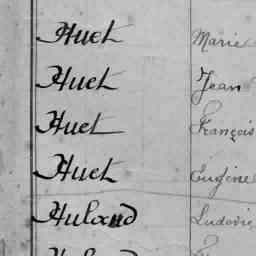 Huet Marie
Huet Jean
Huet François
Huet Eugène
Ludovic